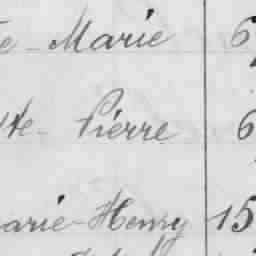 e - Marie 6
te - Pierre 6
arie-Henry 15